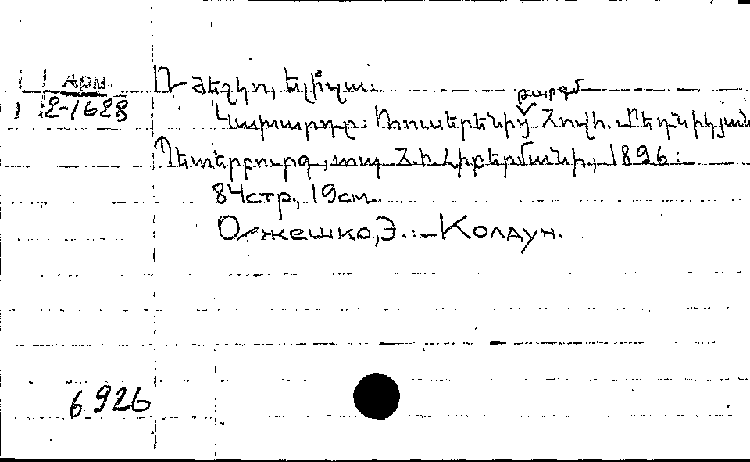 Арм
2-1628
Օրժեշկօ, Ելիզա:
թարգմ
Կախարդը: Ռուսերենից Յովհ. Մեղնիկյան
Պետերբուրգ, տպ. Ն. Ի. Լիբերմանի, 1896:
84 стр., 19 см.
Оржешко, Э. :- Колдун.
6926